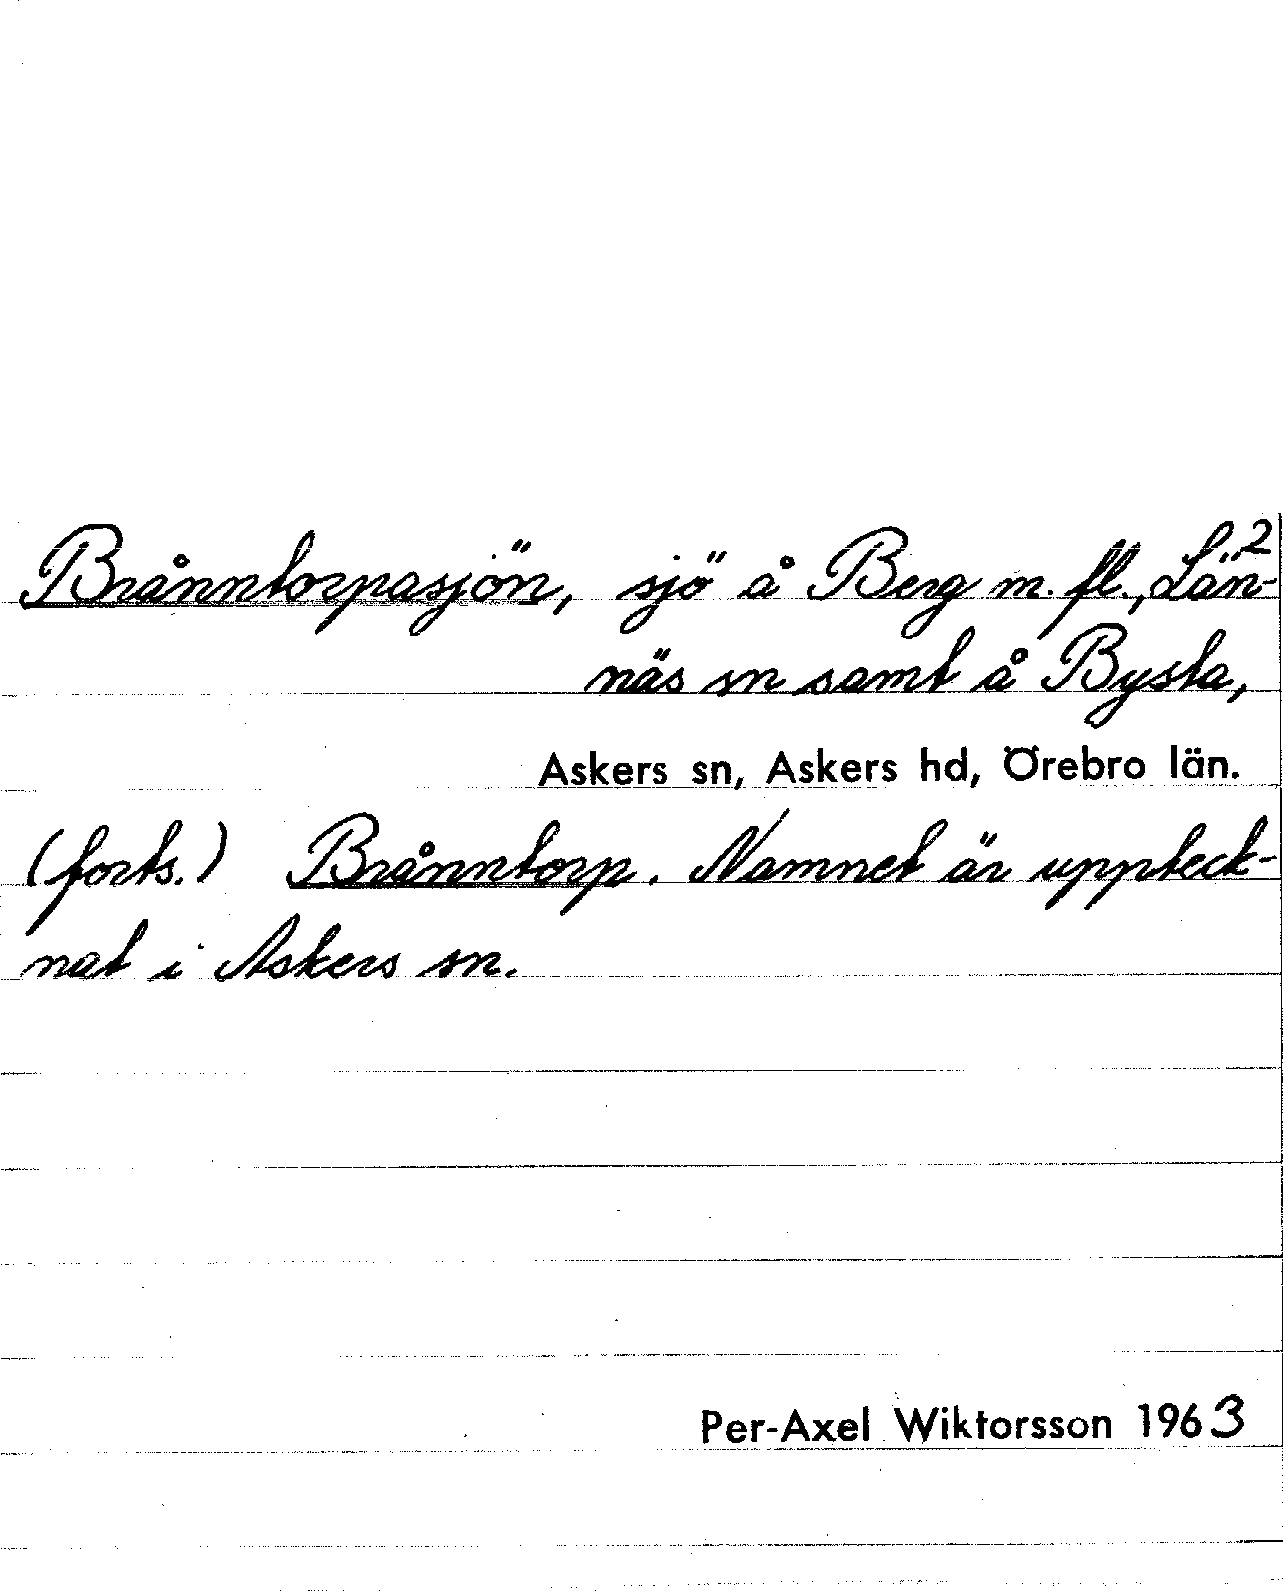 2
Brånntorpasjön, sjö å Berg m. fl., Län-
näs sn samt å Bysta,
Askers sn, Askers hd, Örebro län.
(forts.) Brånntorp. Namnet är uppteck-
nat i Askers sn.
Per-Axel Wiktorsson 1963